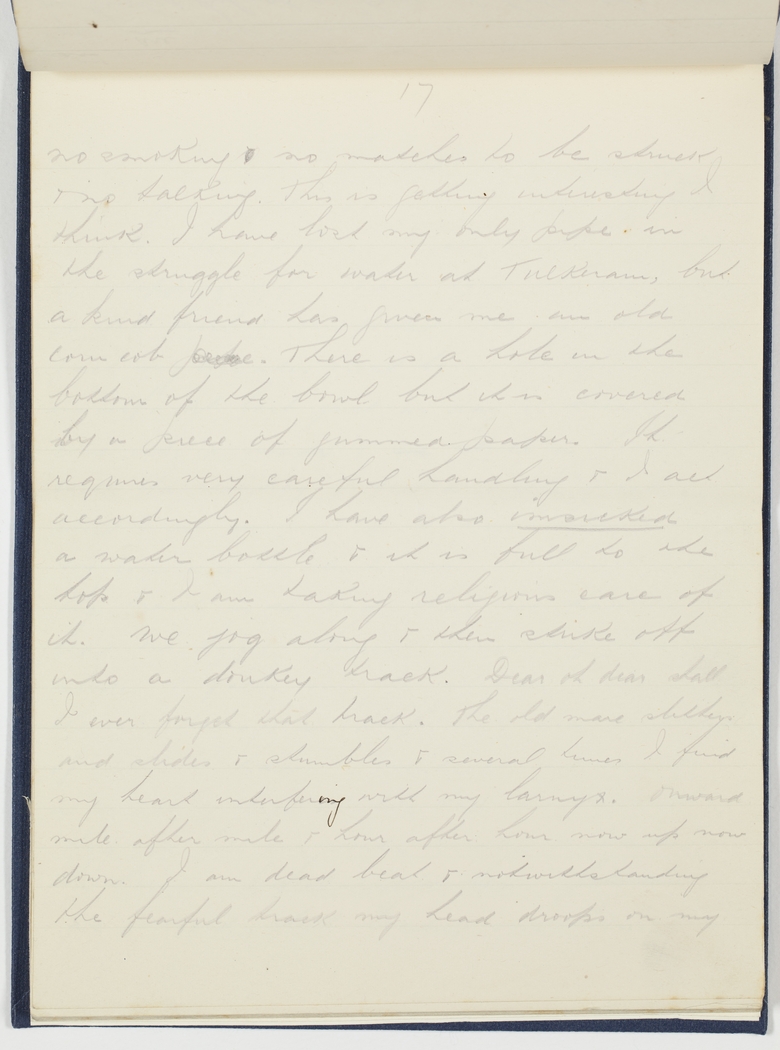 17
no smoking & no matches to be struck
& no talking. This is getting interesting I
think. I have lost my only pipe in
the struggle for water at Tulkeram, but
a kind friend has given me an old
corn cob pipe. There is a hole in the
bottom of the bowl but it is covered
by a piece of gummed paper. It
requires very careful handling & I act
accordingly. I have also
a water bottle & it is full to the
top & I am taking religious care of
it. We jog along & then strike off
into a donkey track. Dear oh dear shall
I ever forget that track. The old mare slithers
and slides & stumbles & several times I find
my heart interfering with my larnyx. Onward
mile after mile & hour after hour now up now
down. I am dead beat & notwithstanding
the fearful track my head droops on my